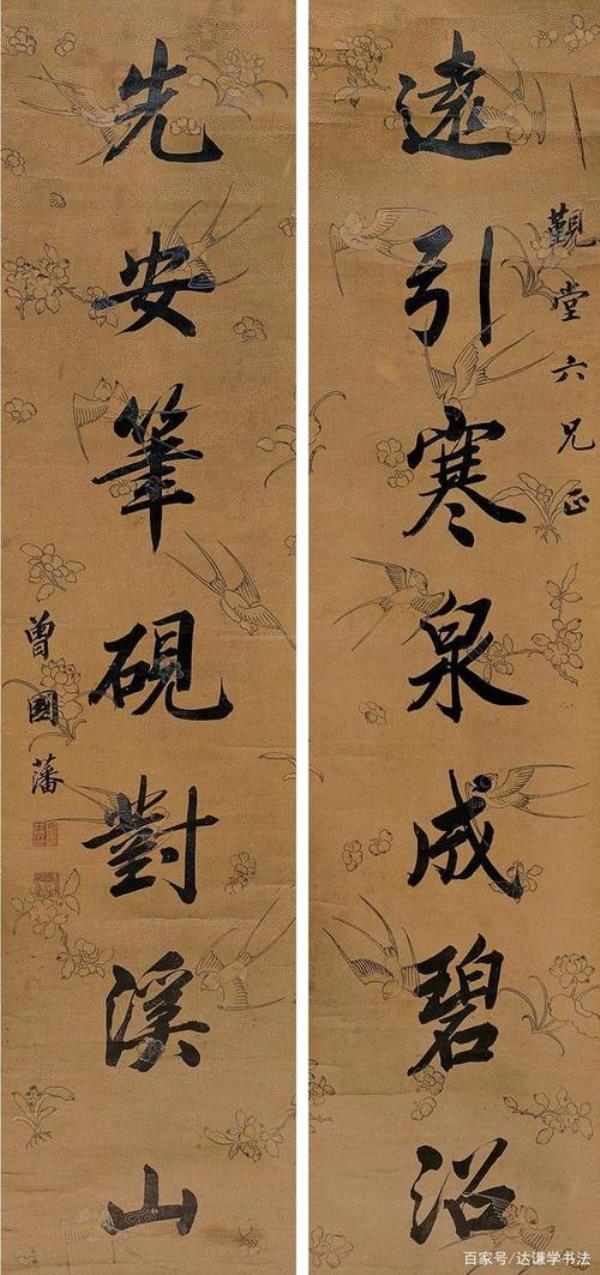 覲堂六兄正
遠引寒泉成碧沼
先安筆硯對溪山
曾國藩
百家号/达谦学书法